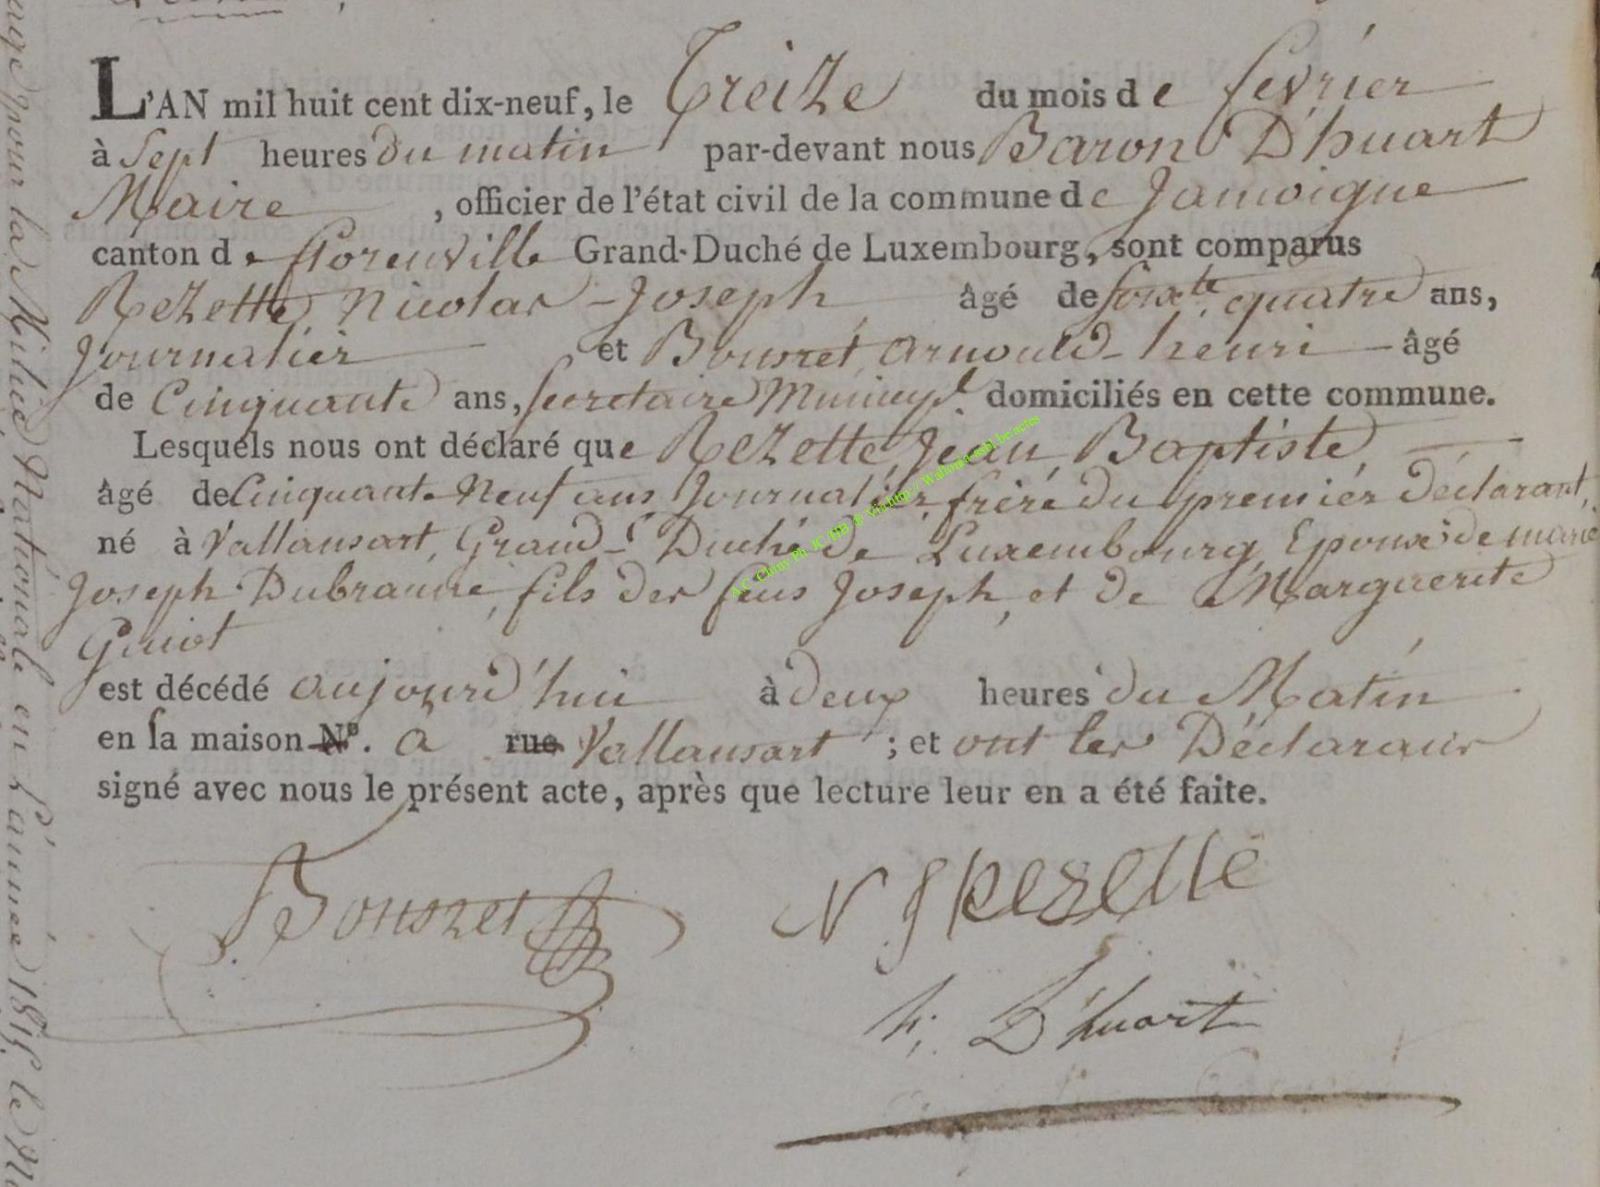 L'AN mil huit cent dix-neuf, le Treize du mois de février
à Sept heures du matin par-devant nous Baron D'huart
Maire, officier de l'état civil de la commune de Jamoigne
canton de florenville Grand-Duché de Luxembourg, sont comparus
Rezette, Nicolas-Joseph âgé de soixte. quatre ans,
Journalier et Bousret, arnould-henri âgé
de Cinquante ans, secretaire Municipl. domiciliés en cette commune.
Lesquels nous ont déclaré que Rezette, Jean Baptiste,
âgé de Cinquante Neuf ans Journalier, frère du premier déclarant,
né à Vallansart, Grand-Duché de Luxembourg, Epoux de marie
Joseph Dubrauire, fils des feus Joseph, et de Marguerite
Guiot
est décédé aujourd'hui à deux heures du Matin
en sa maison N°. à rue Vallansart ; et ont les Déclarans
signé avec nous le présent acte, après que lecture leur en a été faite.
Bousret
N J Rezette
h. D'huart
pour la Milice Nationale en L'année 1815, le